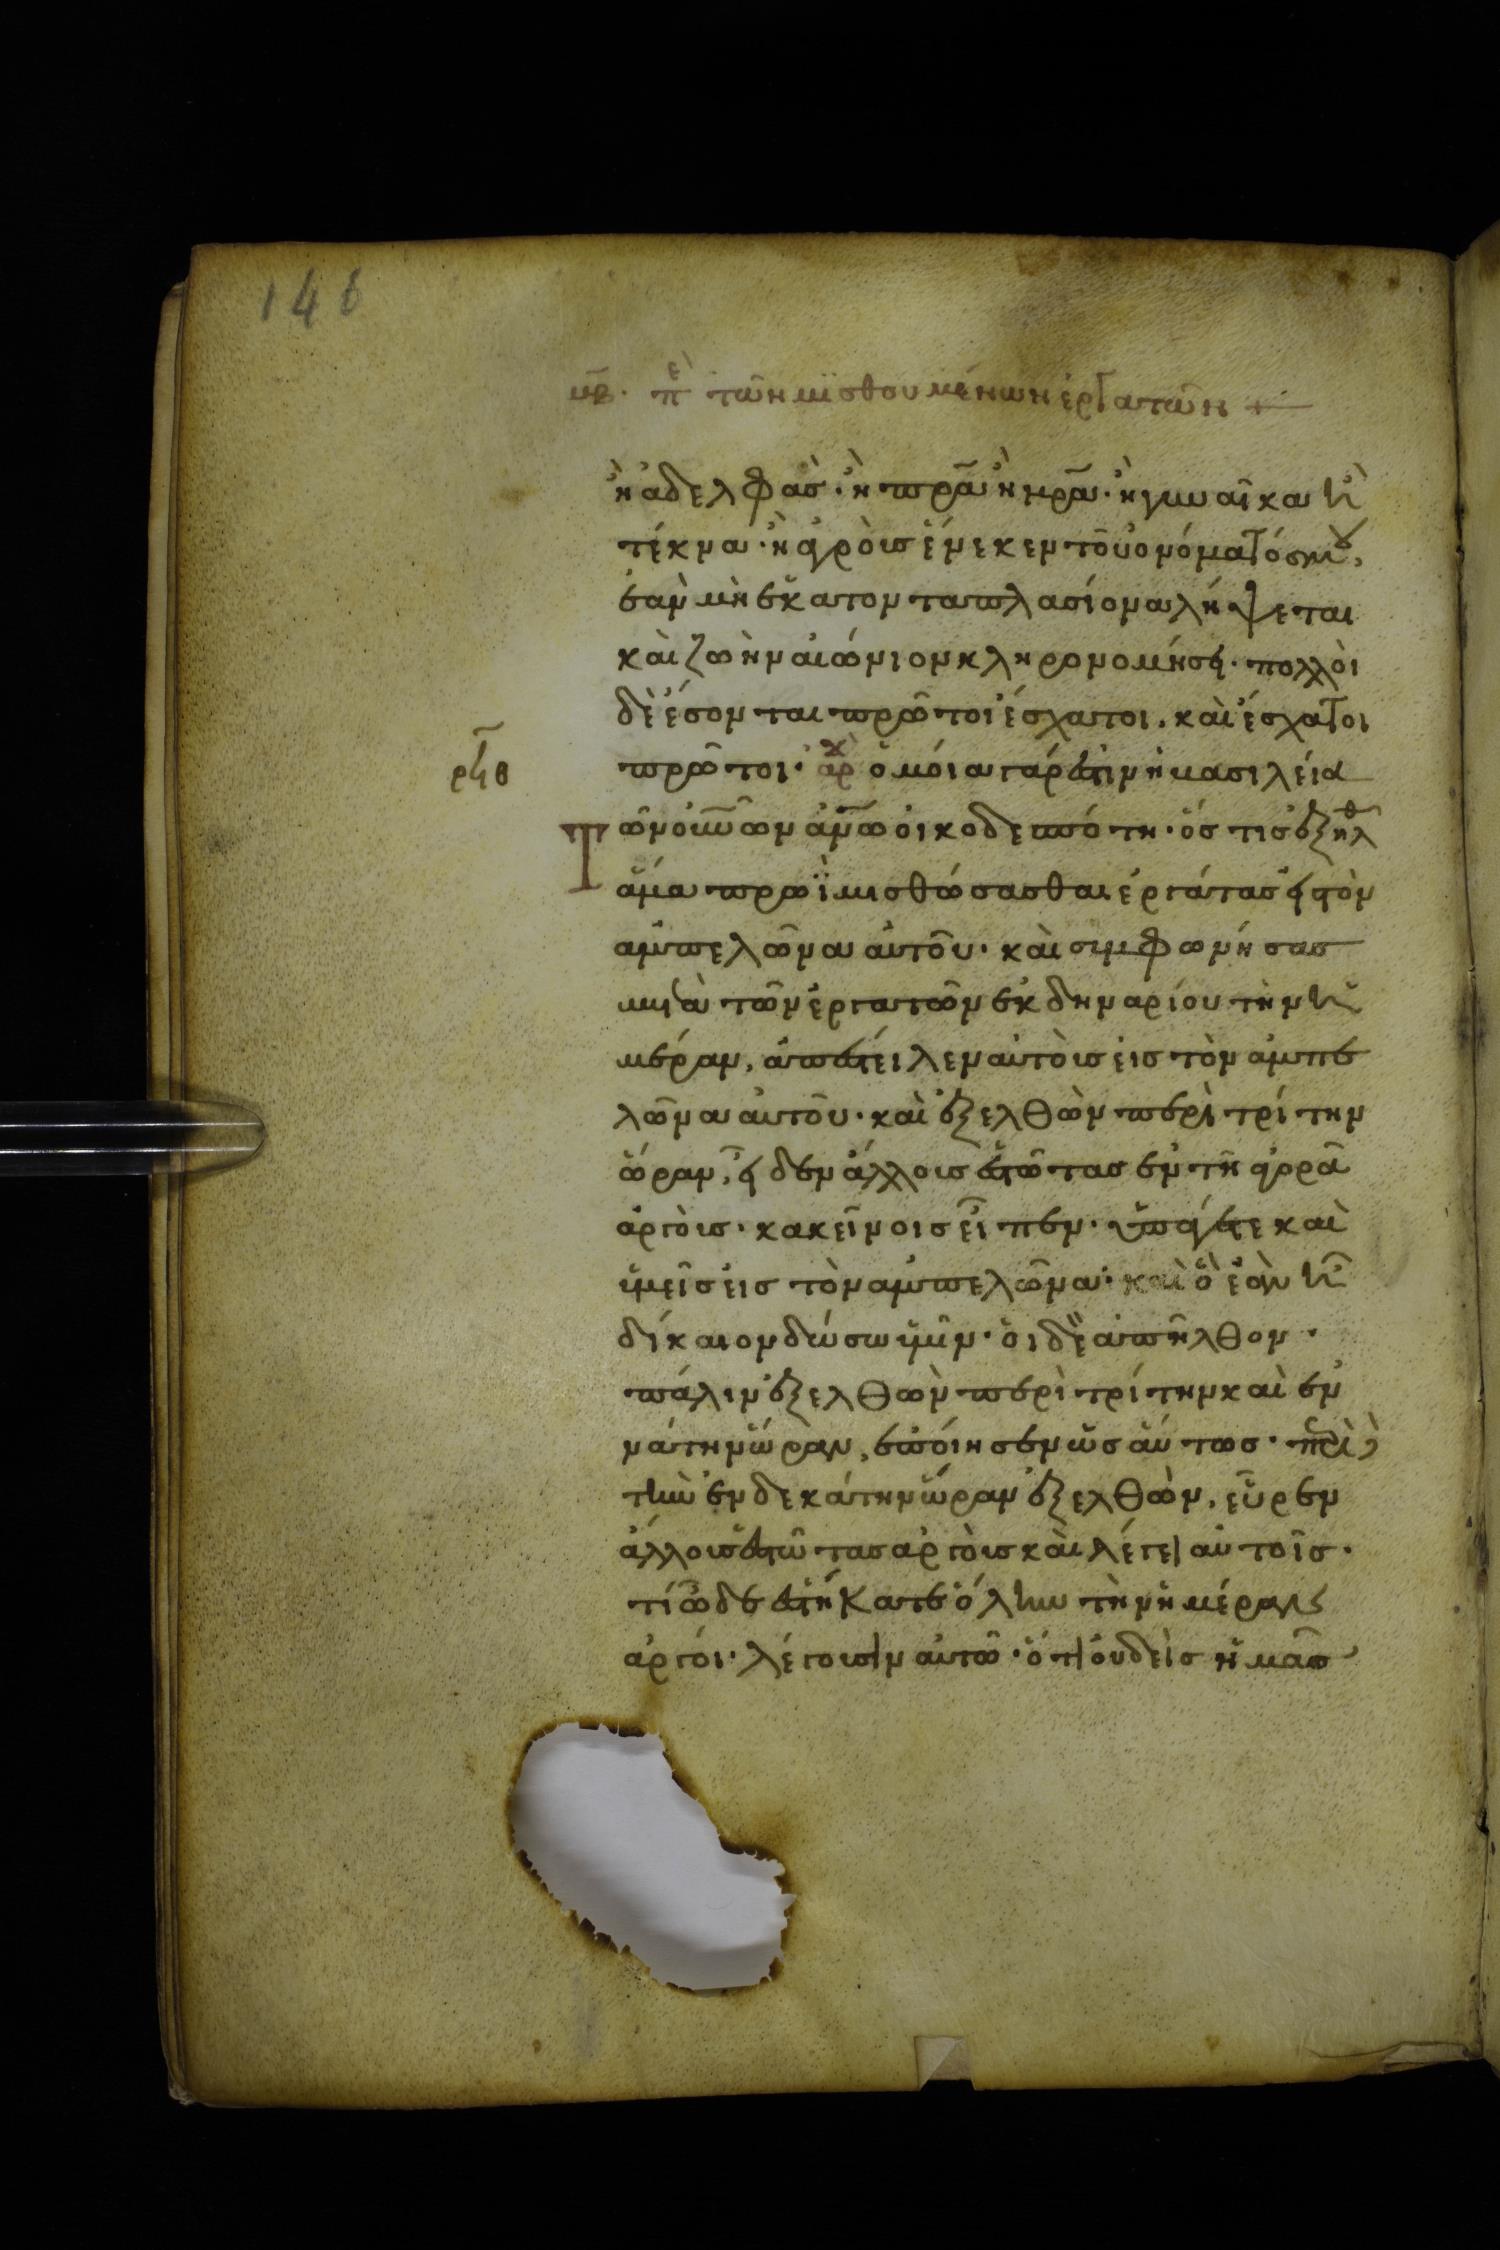 146
μβ. πε τῶν μισθουμένων ἐργατῶν +
ἢ ἀδελφὰσ· ἢ πρᾶ ἢ μρᾶ· ἢ γυναῖκα ἢ
τέκνα· ἢ ἀγροὺσ ἕνεκεν τοῦ ὀνόματόσ μου,
ἑκατονταπλασίονα λήψεται
καὶ ζωὴν αἰώνιον κληρονομήσει· πολλοὶ
δὲ ἔσονται πρῶτοι ἔσχατοι, καὶ ἔσχατοι
ρϟθ
πρῶτοι· ἀρχ ὁμοία γάρ ἐστιν ἡ βασιλεία
Τῶν οὐνῶν ἀνῶ οἰκοδεσπότη· ὅστισ ἐξῆλθ
ἅμα πρωῒ μισθώσασθαι ἐργάτασ εἰσ τὸν
ἀμπελῶνα αὐτοῦ· καὶ συμφωνήσασ
μετὰ τῶν ἐργατῶν ἐκ δηναρίου τὴν ἡ
μέραν, ἀπέστειλεν αὐτοὺσ εἰσ τὸν ἀμπε
λῶνα αὐτοῦ· καὶ ἐξελθὼν περὶ τρίτην
ὥραν, εἶδεν ἄλλουσ ἑστῶτασ ἐν τῆ ἀγορᾶ
ἀργοὺσ· κακεῖνοισ εἶπεν· ὑπάγετε καὶ
ὑμεῖσ εἰσ τὸν ἀμπελῶνα· καὶ ὃ ἐὰν ἦ
δίκαιον δώσω ὑμῖν· οἱ δὲ ἀπῆλθον·
πάλιν ἐξελθὼν περὶ τρίτην καὶ ἐν
νάτην ὥραν, ἐποίησεν ὡσαύτωσ· περὶ
τὴν ἑνδεκάτην ὥραν ἐξελθὼν, εὗρεν
ἄλλουσ ἑστῶτασ ἀργοὺσ καὶ λέγει αὐτοῖσ·
τί ὧδε ἑστήκατε ὅλην τὴν ἡμέραν
ἀργοί· λέγουσιν αὐτῶ· ὅτι οὐδεὶσ ἡμᾶσ